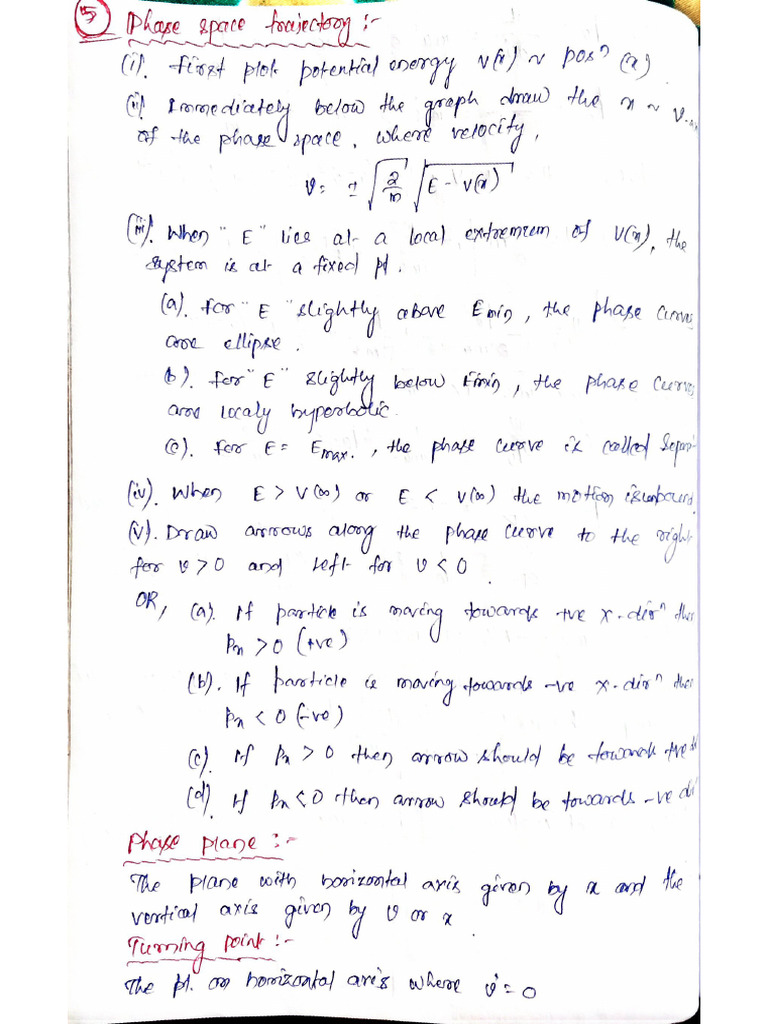 5 Phase space trajectory :-
(i). First plot potential energy V(x) ~ posⁿ (x)
(ii) Immediately below the graph draw the x ~ v
of the phase space. where velocity,
v = ± √(2/m) √(E - V(x))
(iii). When "E" lies at a local extremum of V(x), the
system is at a fixed pt.
(a). for "E" slightly above Emin, the phase curves
are ellipse.
(b). for "E" slightly below Emin, the phase curves
are localy hyperbolic.
(c). for E = Emax., the phase curve is called Separ
(iv). When E > V(∞) or E < V(∞) the motion is unbound.
(v). Draw arrows along the phase curve to the right
for v > 0 and left for v < 0
OR, (a). If particle is moving towards +ve x-dirⁿ then
Px > 0 (+ve)
(b). If particle is moving towards -ve x-dirⁿ then
Px < 0 (-ve)
(c). If Px > 0 then arrow should be towards +ve di
(d). If Px < 0 then arrow should be towards -ve di
Phase plane :-
The plane with horizontal axis given by x and the
vertical axis given by v or x
Turning point :-
The pt. on horizontal axis where v = 0